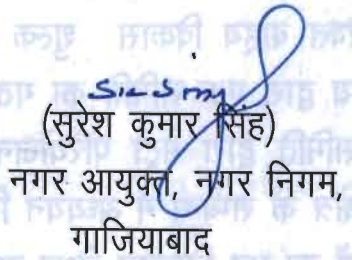 (सुरेश कुमार सिंह)
नगर आयुक्त, नगर निगम,
गाजियाबाद